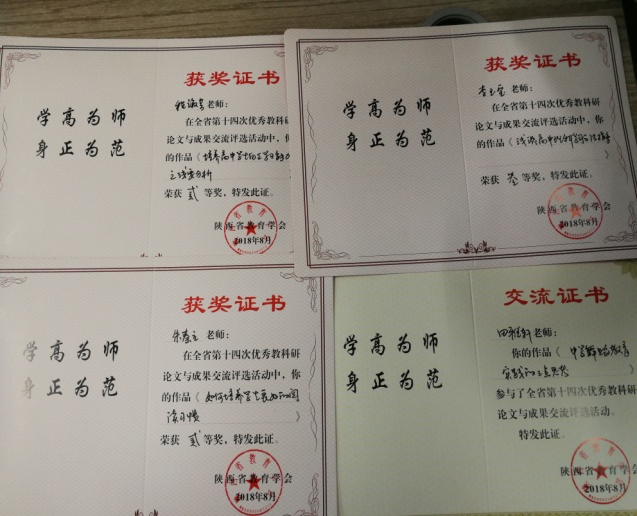 学高为师
身正为范
获奖证书
老师:
在全省第十四次优秀教科研
论文与成果交流评选活动中,你
的作品(培养高中学生
荣获 贰 等奖,特发此证。
陕西省教育学会
2018年8月
学高为师
身正为范
获奖证书
老师:
在全省第十四次优秀教科研
论文与成果交流评选活动中,你
的作品(浅谈高中
)
荣获 叁 等奖,特发此证。
陕西省教育学会
2018年8月
学高为师
身正为范
获奖证书
老师:
在全省第十四次优秀教科研
论文与成果交流评选活动中,你
的作品(如何培养学生良好的阅
读习惯 )
荣获 贰 等奖,特发此证。
陕西省教育学会
2018年8月
学高为师
身正为范
交流证书
老师:
你的作品(中学
)
参与了全省第十四次优秀教科研
论文与成果交流评选活动。
特发此证。
陕西省教育学会
2018年8月